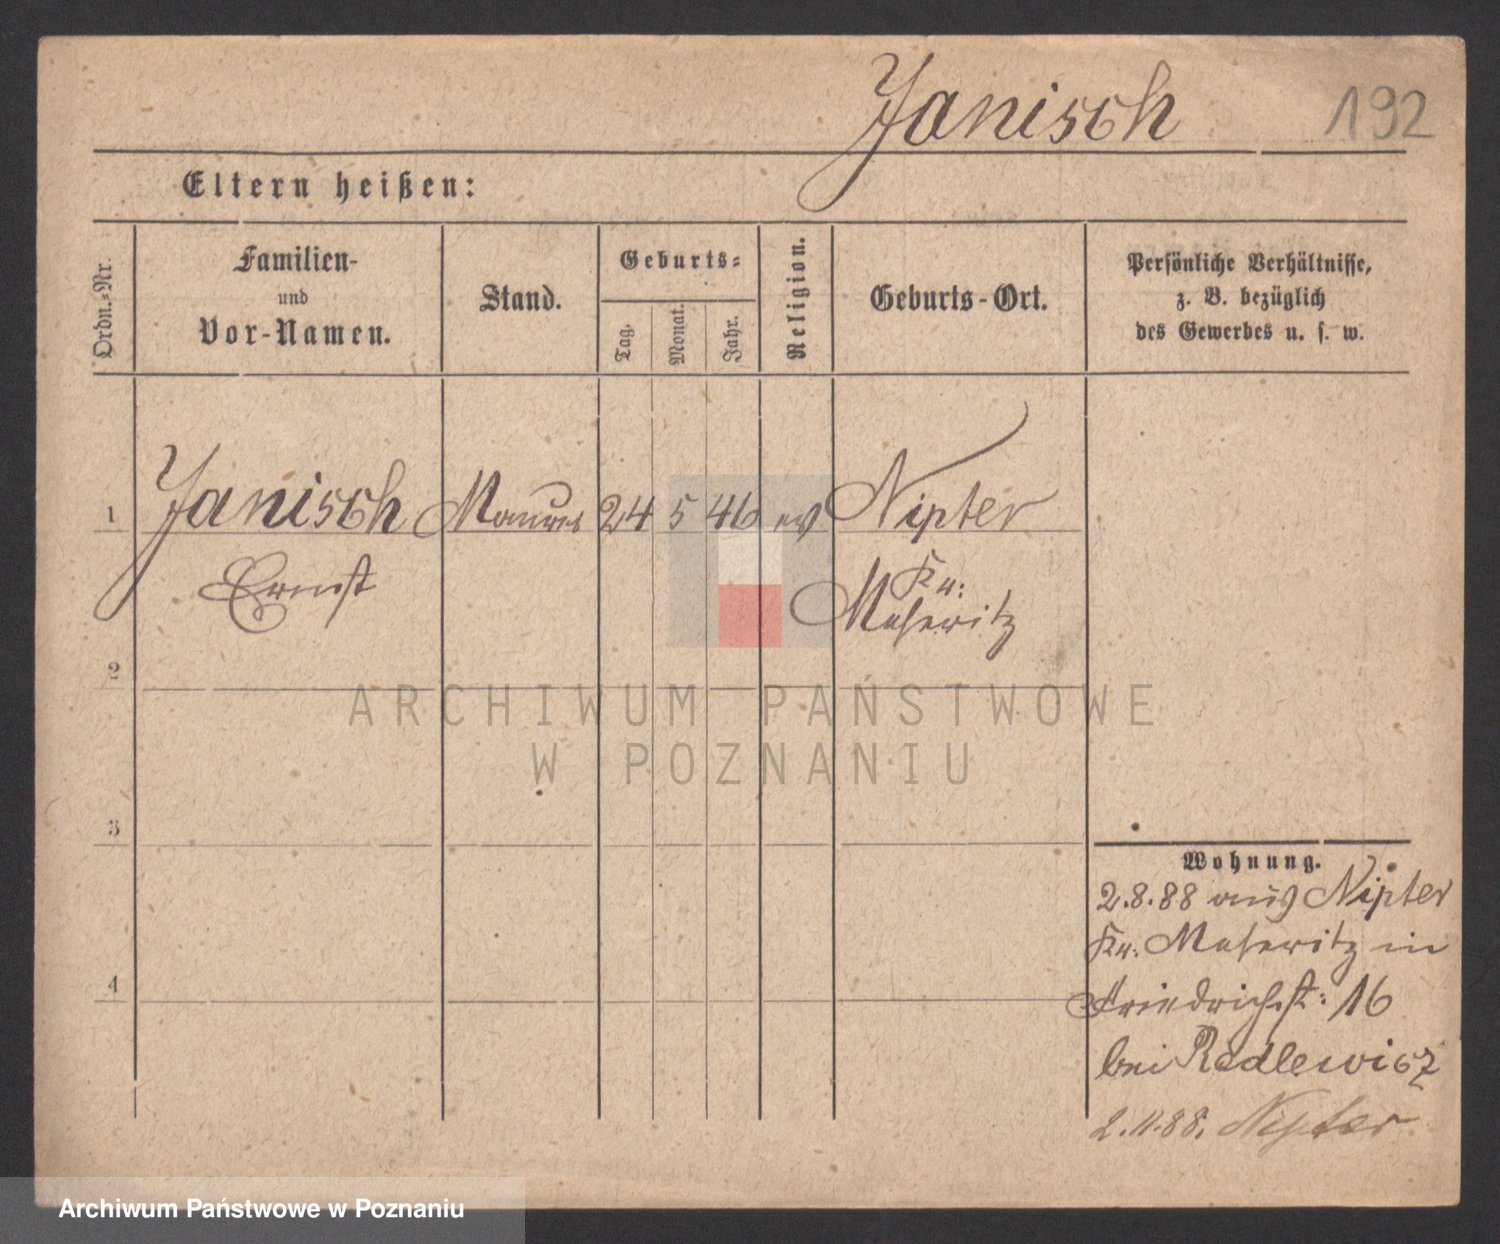 Janisch 192
Eltern heißen:
Ordn.-Nr.
Familien-
und
Vor-Namen.
Stand.
Geburts-
Tag.
Monat.
Jahr.
Religion.
Geburts-Ort.
Persönliche Verhältnisse,
z. B. bezüglich
des Gewerbes u. s. w.
1 Janisch Maurer 24 5 46 ev Nipter
Ernst
Kr:
Meseritz
2
3
4
Wohnung.
2.8.88 aus Nipter
Kr. Meseritz in
Friedrichst: 16
bei Radlewicz
2.11.88. Nipter
ARCHIWUM PAŃSTWOWE
W POZNANIU
Archiwum Państwowe w Poznaniu